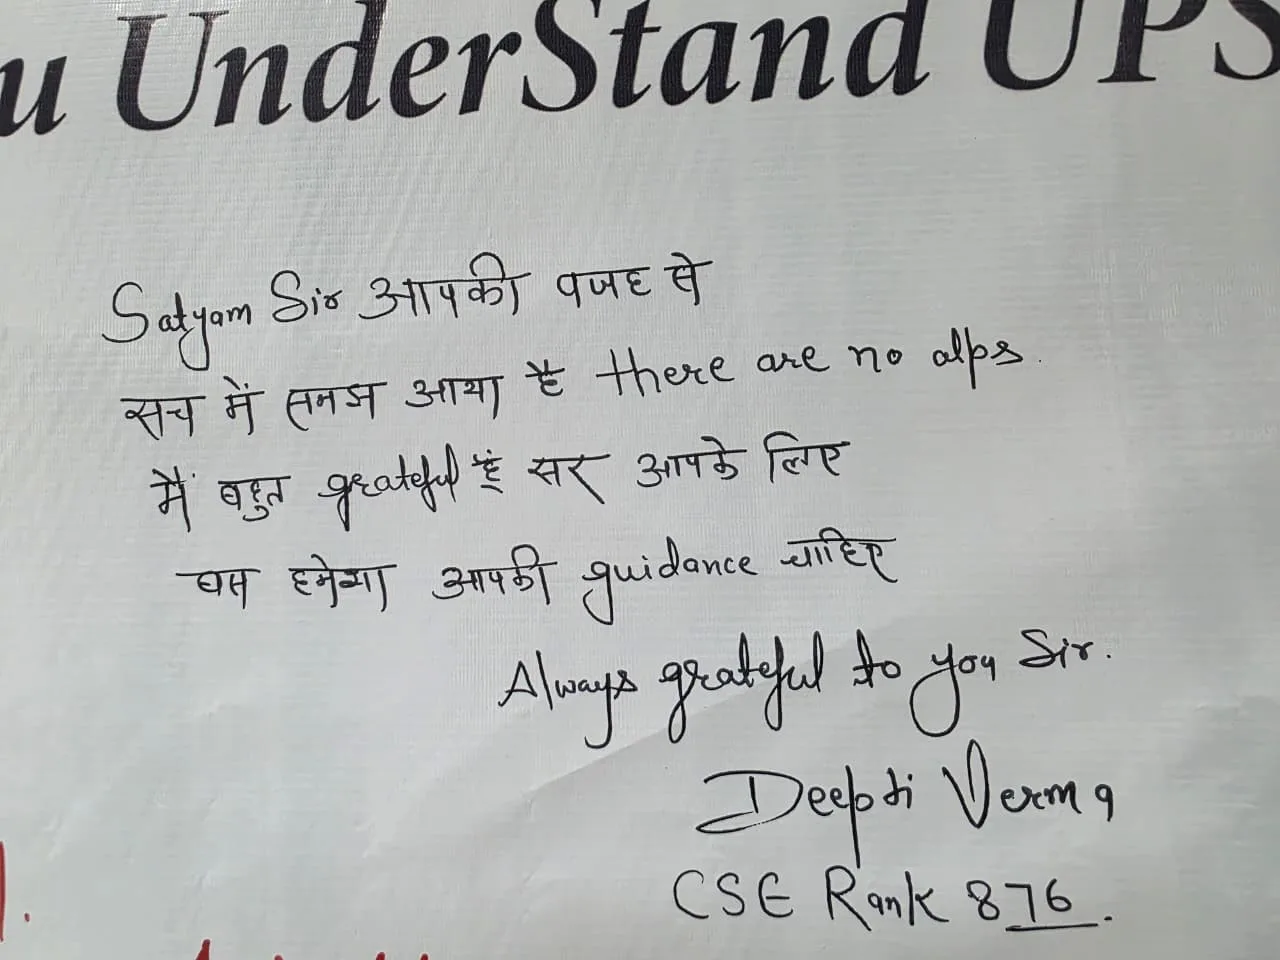 u UnderStand UPS
Satyam Sir आपकी वजह से
सच में समझ आया है there are no alps.
मैं बहुत grateful हूं सर आपके लिए
बस हमेशा आपकी guidance चाहिए
Always grateful to you Sir.
Deepti Verma
CSE Rank 876.